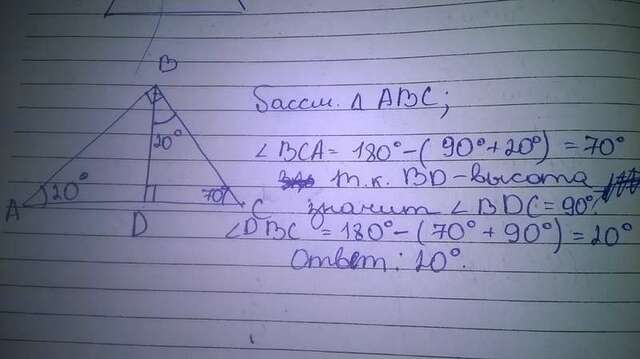 B
20°
20°
70°
A
D
C
Рассм. △ ABC;
∠BCA = 180° - (90° + 20°) = 70°
т.к. BD - высота
значит ∠BDC = 90°.
∠DBC = 180° - (70° + 90°) = 20°
Ответ: 20°.